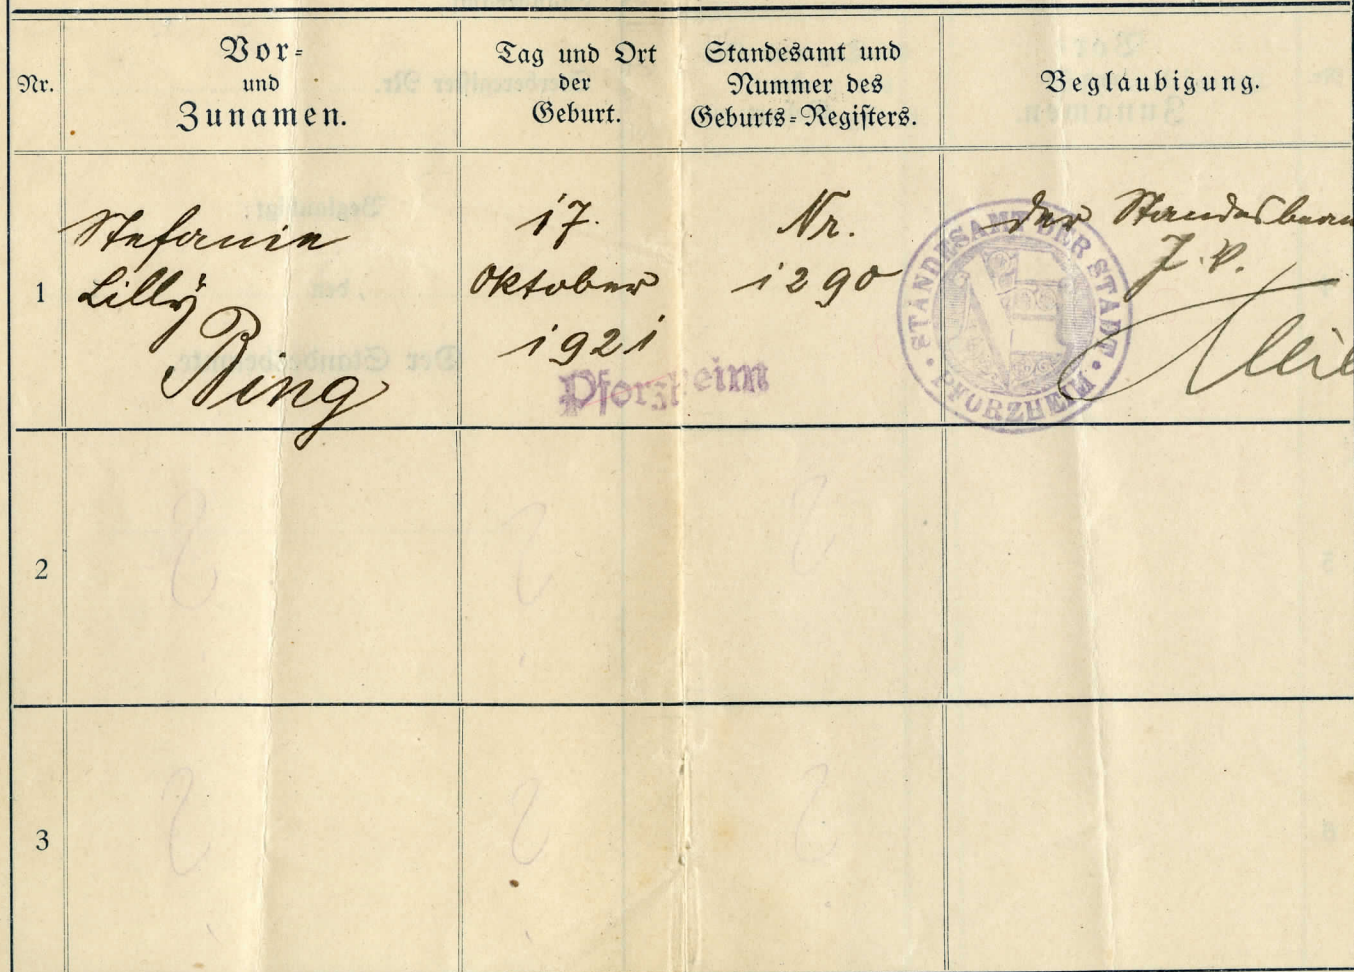 Nr.
Vor=
und
Zunamen.
Tag und Ort
der
Geburt.
Standesamt und
Nummer des
Geburts=Registers.
Beglaubigung.
1
Stefanie
Lilly
Bing
17.
Oktober
1921
Pforzheim
Nr.
1290
STANDESAMT DER STADT
• PFORZHEIM •
der Standesbeam
J. V.
2
3